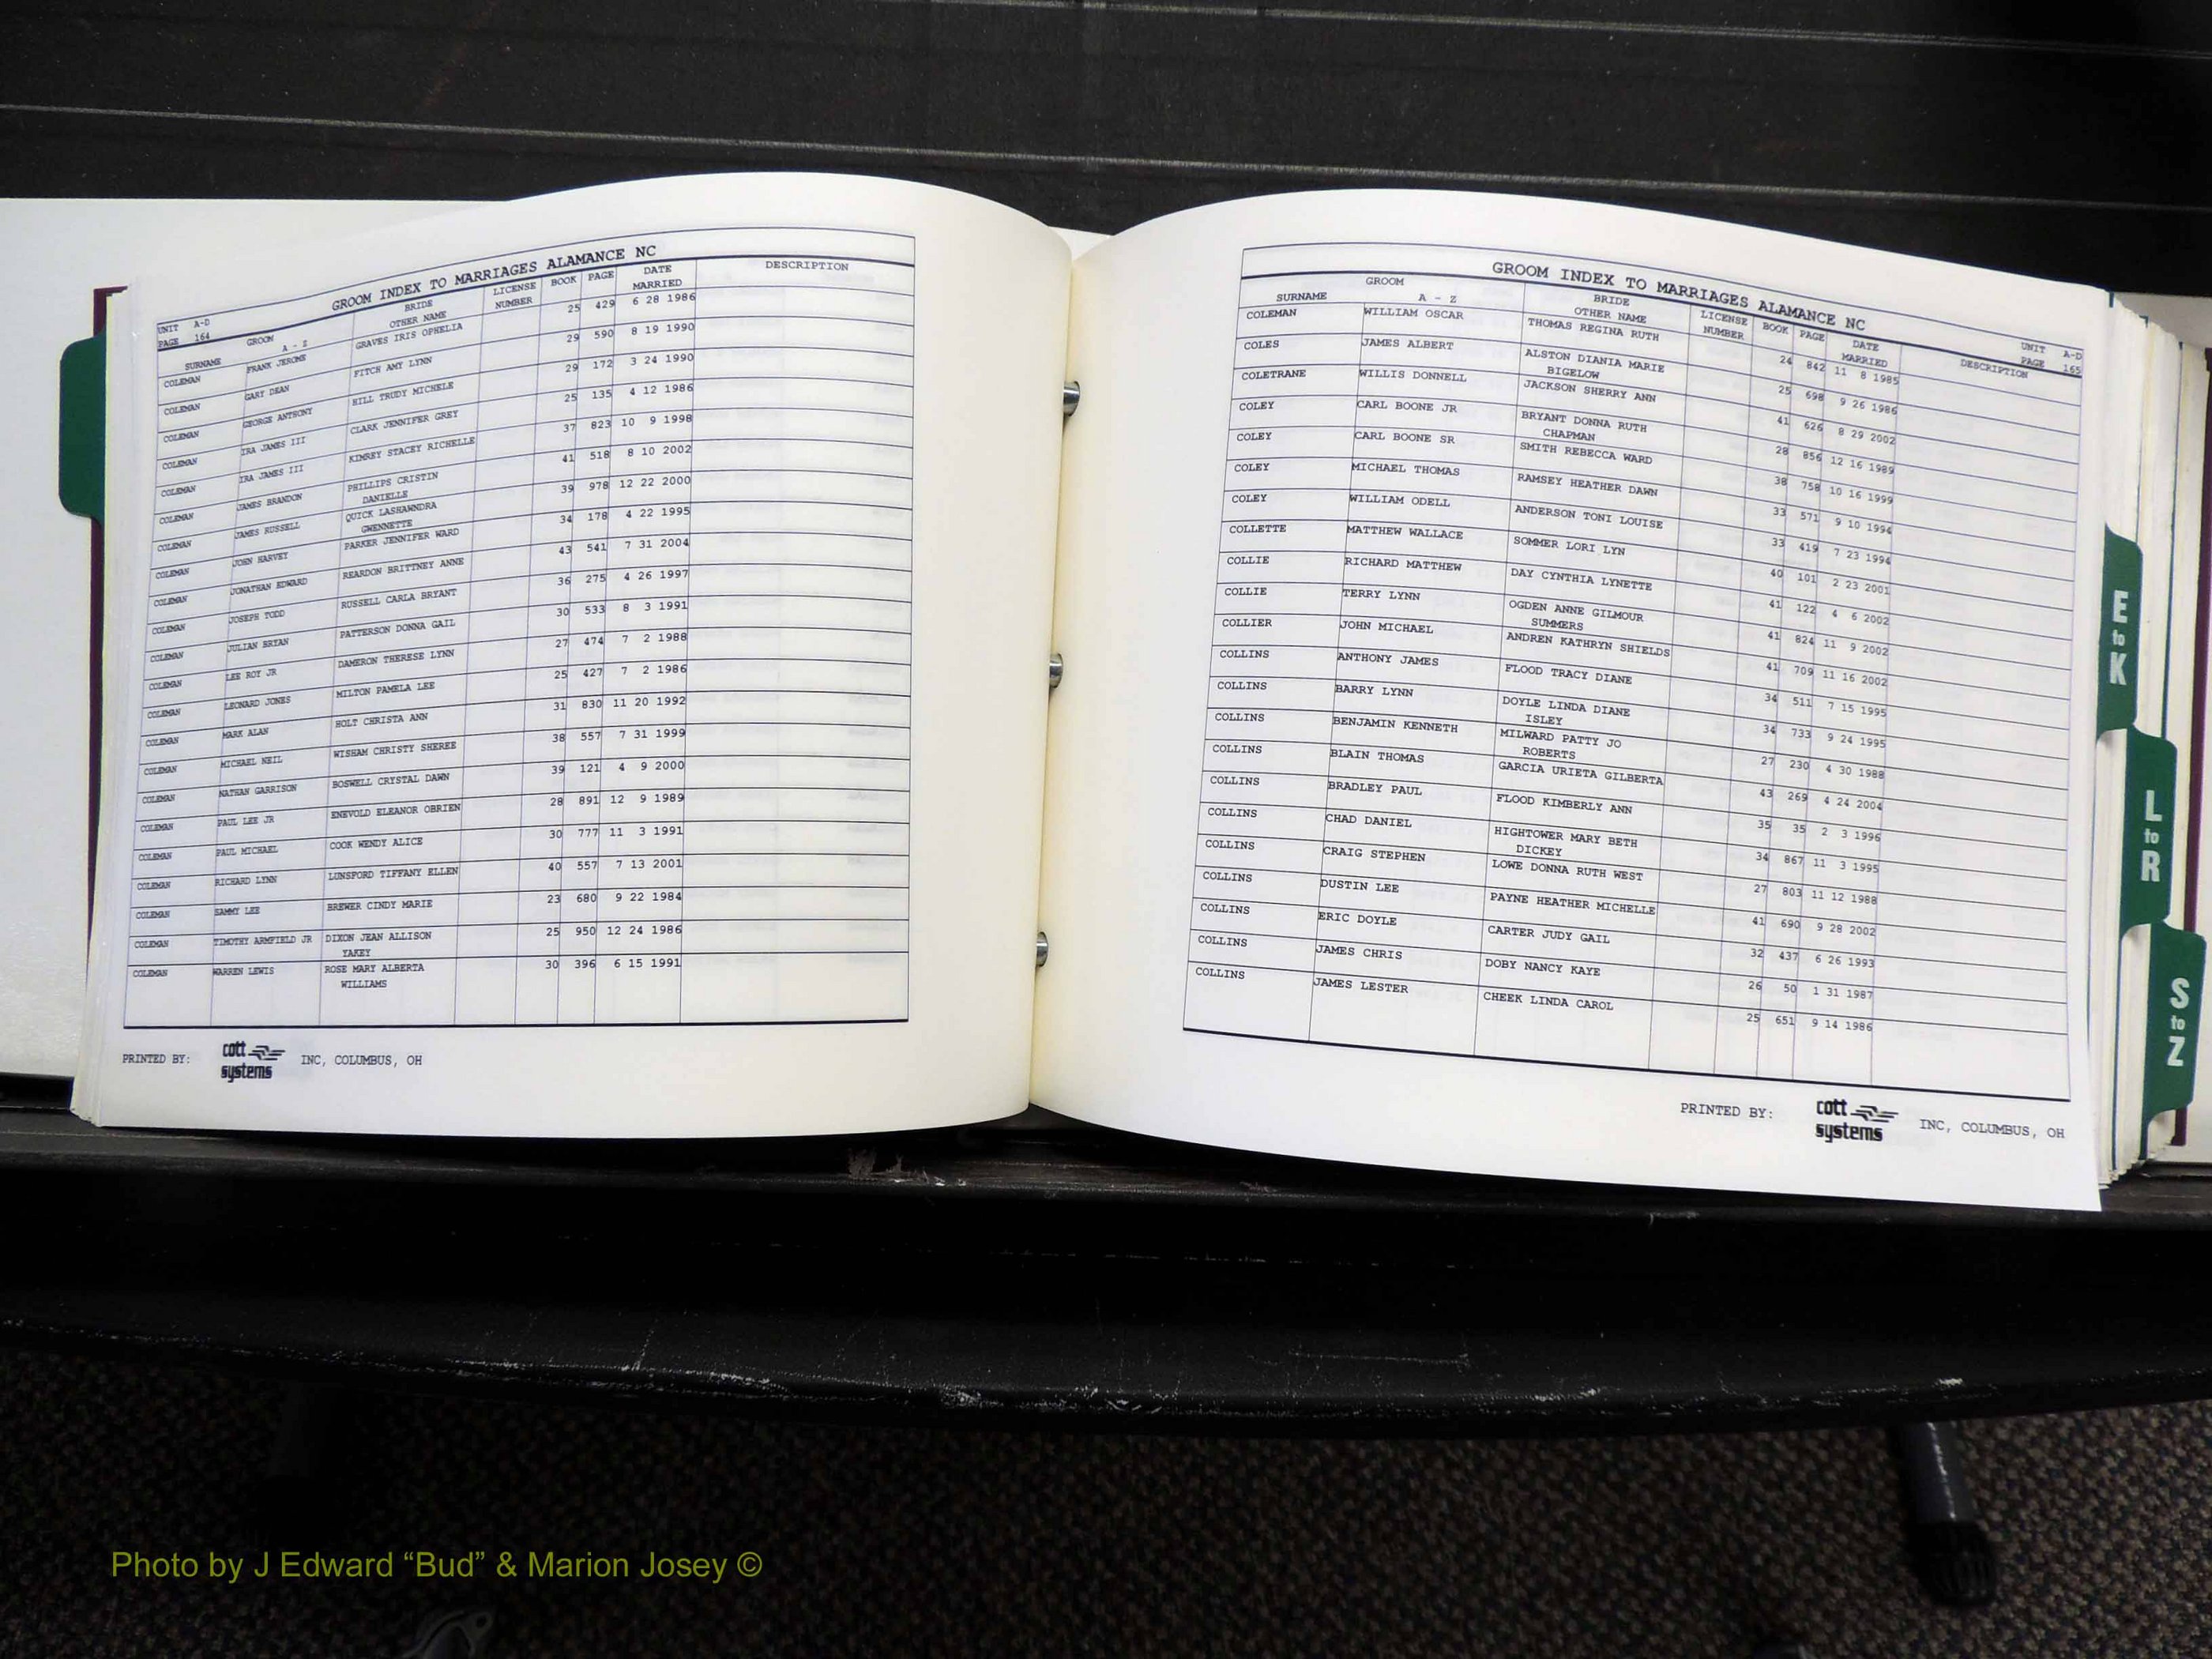 UNIT A-D
PAGE 164
GROOM INDEX TO MARRIAGES ALAMANCE NC
SURNAME GROOM A - Z BRIDE OTHER NAME LICENSE NUMBER BOOK PAGE DATE MARRIED DESCRIPTION
COLEMAN FRANK JEROME GRAVES IRIS OPHELIA 25 429 6 28 1986
COLEMAN GARY DEAN FITCH AMY LYNN 29 590 8 19 1990
COLEMAN GEORGE ANTHONY HILL TRUDY MICHELE 29 172 3 24 1990
COLEMAN IRA JAMES III CLARK JENNIFER GREY 25 135 4 12 1986
COLEMAN IRA JAMES III KIMREY STACEY RICHELLE 37 823 10 9 1998
COLEMAN JAMES BRANDON PHILLIPS CRISTIN 41 518 8 10 2002
DANIELLE
COLEMAN JAMES RUSSELL QUICK LASHAWNDRA 39 978 12 22 2000
GWENNETTE
COLEMAN JOHN HARVEY PARKER JENNIFER WARD 34 178 4 22 1995
COLEMAN JONATHAN EDWARD REARDON BRITTNEY ANNE 43 541 7 31 2004
COLEMAN JOSEPH TODD RUSSELL CARLA BRYANT 36 275 4 26 1997
COLEMAN JULIAN BRYAN PATTERSON DONNA GAIL 30 533 8 3 1991
COLEMAN LEE ROY JR DAMERON THERESE LYNN 27 474 7 2 1988
COLEMAN LEONARD JONES MILTON PAMELA LEE 25 427 7 2 1986
COLEMAN MARK ALAN HOLT CHRISTA ANN 31 830 11 20 1992
COLEMAN MICHAEL NEIL WISHAM CHRISTY SHEREE 38 557 7 31 1999
COLEMAN NATHAN GARRISON BOSWELL CRYSTAL DAWN 39 121 4 9 2000
COLEMAN PAUL LEE JR ENEVOLD ELEANOR OBRIEN 28 891 12 9 1989
COLEMAN PAUL MICHAEL COOK WENDY ALICE 30 777 11 3 1991
COLEMAN RICHARD LYNN LUNSFORD TIFFANY ELLEN 40 557 7 13 2001
COLEMAN SAMMY LEE BREWER CINDY MARIE 23 680 9 22 1984
COLEMAN TIMOTHY ARMFIELD JR DIXON JEAN ALLISON 25 950 12 24 1986
YAKEY
COLEMAN WARREN LEWIS ROSE MARY ALBERTA 30 396 6 15 1991
WILLIAMS
PRINTED BY: cott systems INC, COLUMBUS, OH
GROOM INDEX TO MARRIAGES ALAMANCE NC
UNIT A-D
PAGE 165
SURNAME GROOM A - Z BRIDE OTHER NAME LICENSE NUMBER BOOK PAGE DATE MARRIED DESCRIPTION
COLEMAN WILLIAM OSCAR THOMAS REGINA RUTH 24 842 11 8 1985
COLES JAMES ALBERT ALSTON DIANIA MARIE 25 698 9 26 1986
BIGELOW
COLETRANE WILLIS DONNELL JACKSON SHERRY ANN 41 626 8 29 2002
COLEY CARL BOONE JR BRYANT DONNA RUTH 28 856 12 16 1989
CHAPMAN
COLEY CARL BOONE SR SMITH REBECCA WARD 38 758 10 16 1999
COLEY MICHAEL THOMAS RAMSEY HEATHER DAWN 33 571 9 10 1994
COLEY WILLIAM ODELL ANDERSON TONI LOUISE 33 419 7 23 1994
COLLETTE MATTHEW WALLACE SOMMER LORI LYN 40 101 2 23 2001
COLLIE RICHARD MATTHEW DAY CYNTHIA LYNETTE 41 122 4 6 2002
COLLIE TERRY LYNN OGDEN ANNE GILMOUR 41 824 11 9 2002
SUMMERS
COLLIER JOHN MICHAEL ANDREN KATHRYN SHIELDS 41 709 11 16 2002
COLLINS ANTHONY JAMES FLOOD TRACY DIANE 34 511 7 15 1995
COLLINS BARRY LYNN DOYLE LINDA DIANE 34 733 9 24 1995
ISLEY
COLLINS BENJAMIN KENNETH MILWARD PATTY JO 27 230 4 30 1988
ROBERTS
COLLINS BLAIN THOMAS GARCIA URIETA GILBERTA 43 269 4 24 2004
COLLINS BRADLEY PAUL FLOOD KIMBERLY ANN 35 35 2 3 1996
COLLINS CHAD DANIEL HIGHTOWER MARY BETH 34 867 11 3 1995
DICKEY
COLLINS CRAIG STEPHEN LOWE DONNA RUTH WEST 27 803 11 12 1988
COLLINS DUSTIN LEE PAYNE HEATHER MICHELLE 41 690 9 28 2002
COLLINS ERIC DOYLE CARTER JUDY GAIL 32 437 6 26 1993
COLLINS JAMES CHRIS DOBY NANCY KAYE 26 50 1 31 1987
COLLINS JAMES LESTER CHEEK LINDA CAROL 25 651 9 14 1986
PRINTED BY: cott systems INC, COLUMBUS, OH
E to K
L to R
S to Z
Photo by J Edward “Bud” & Marion Josey ©